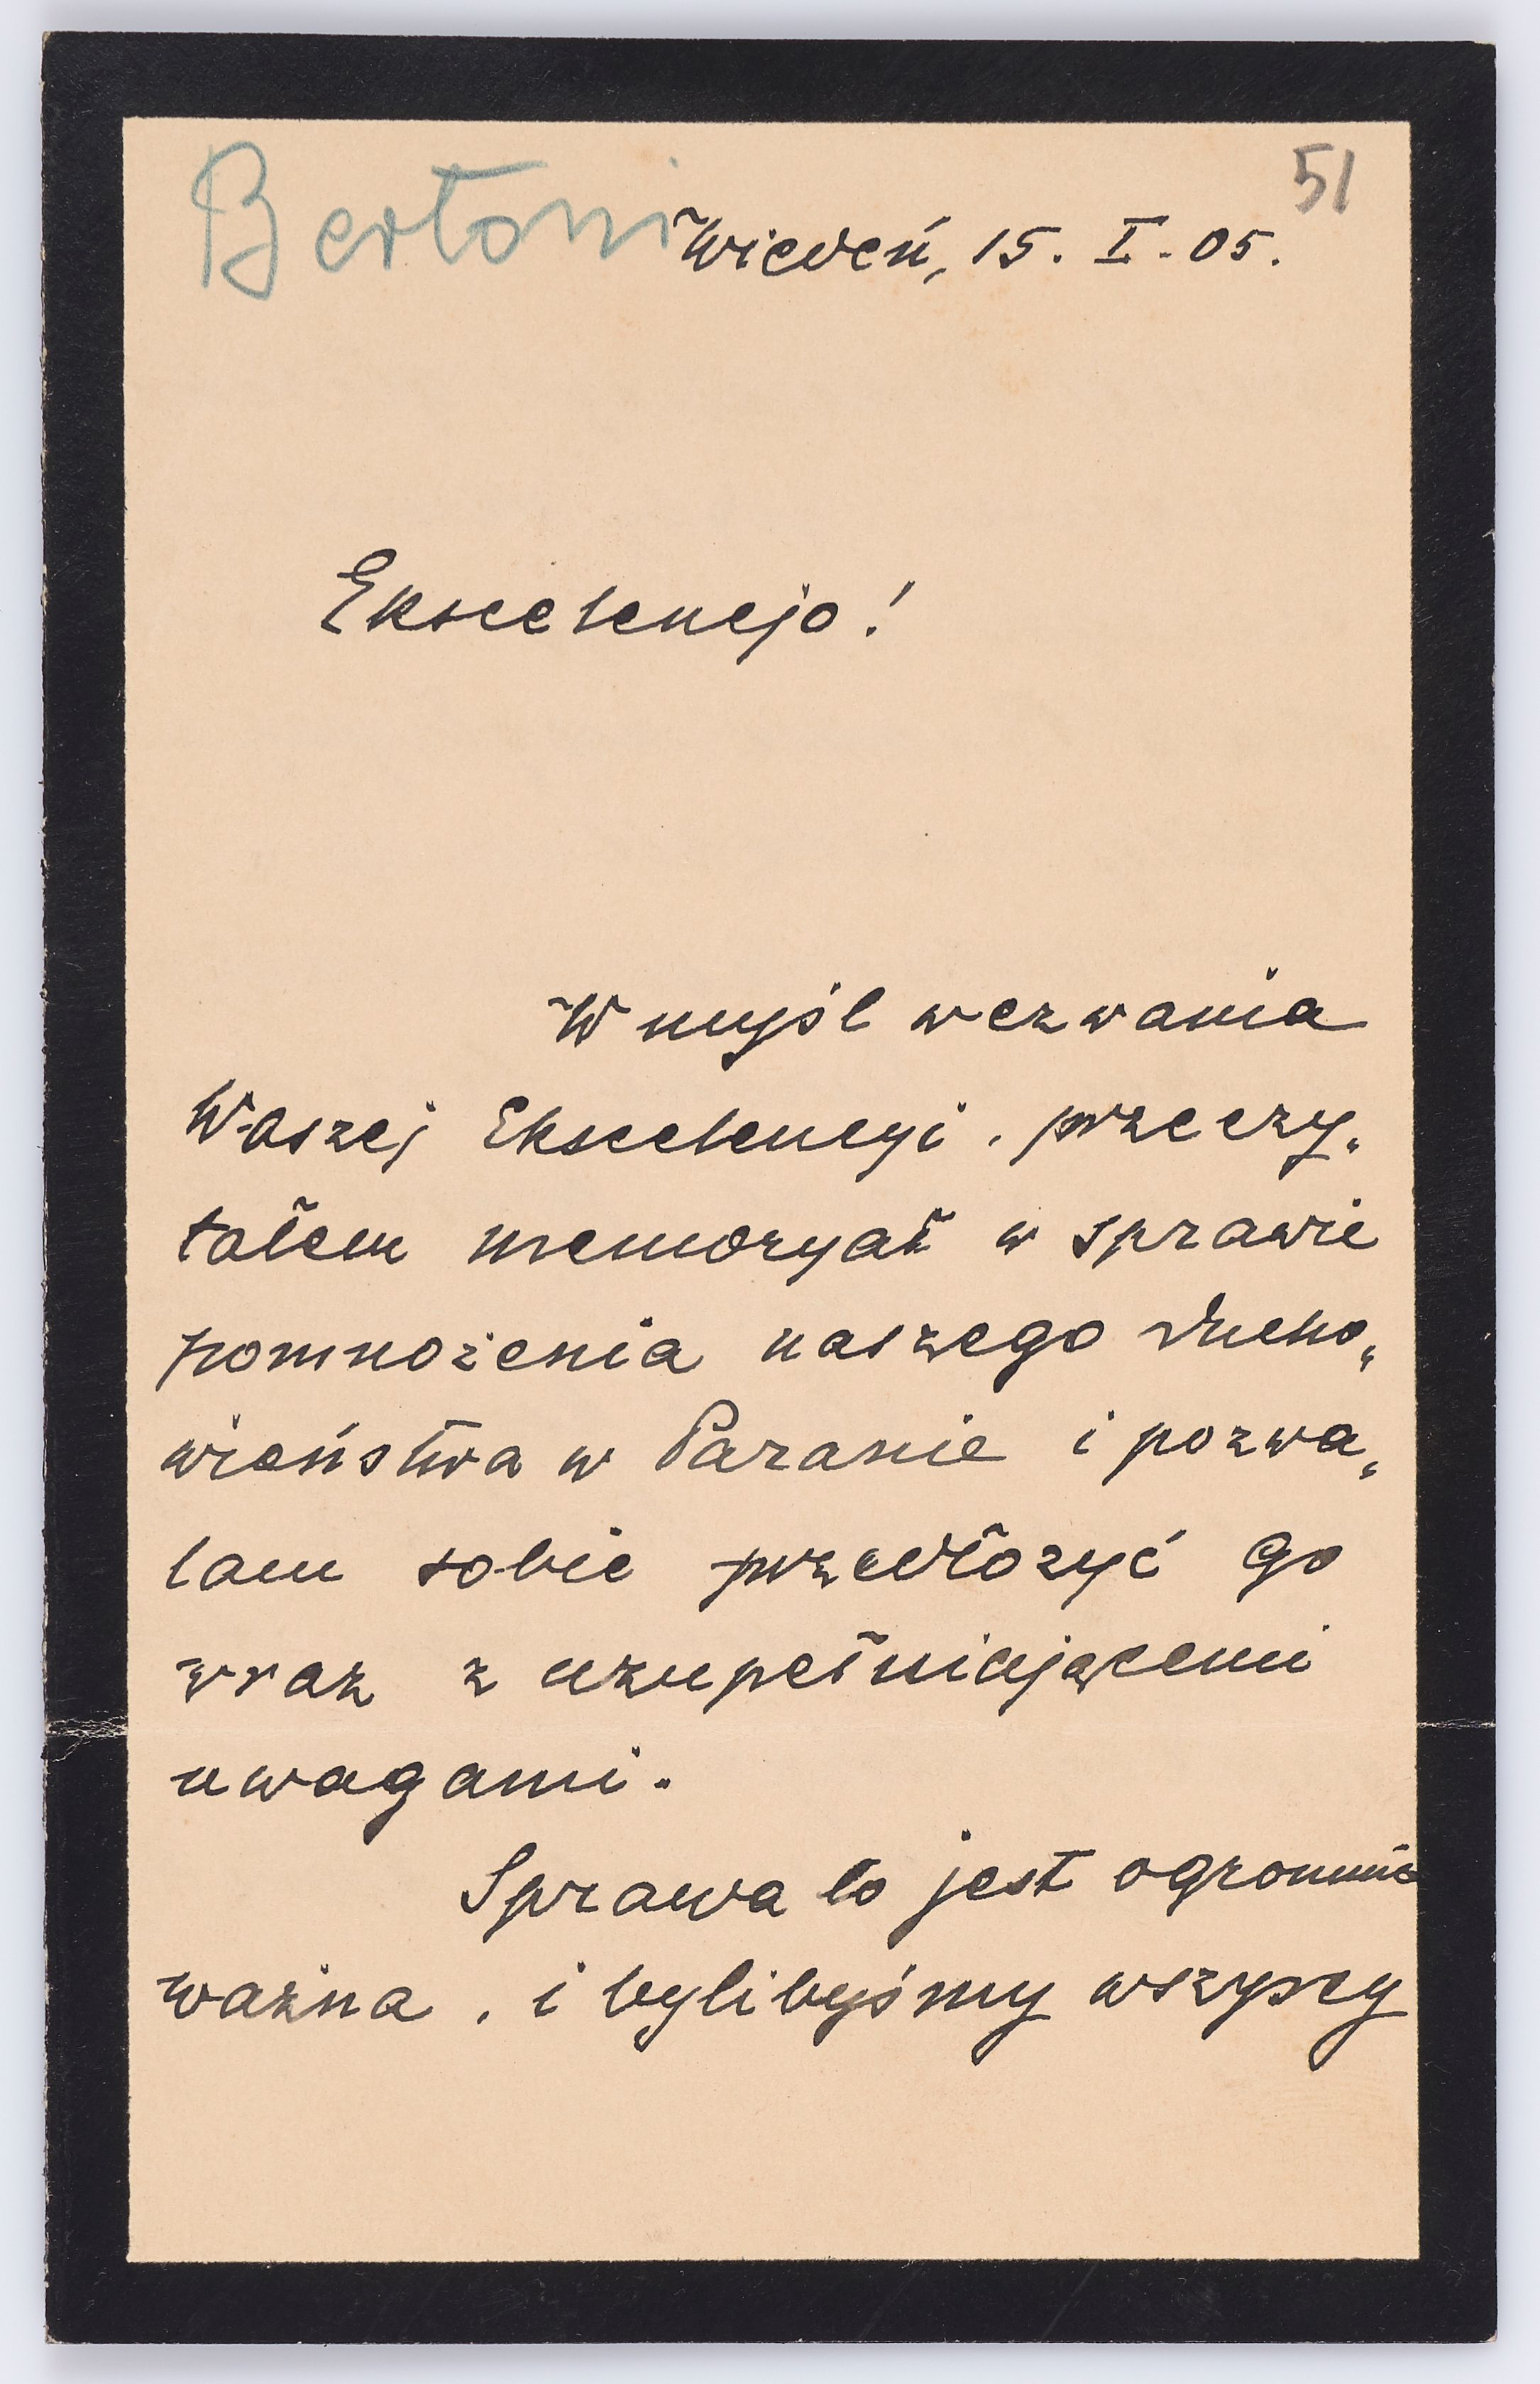 Bertoni
51
Wiedeń, 15. I. 05.
Ekscelencjo!
W myśl wezwania
Waszej Ekscelencyi, przeczy„
tałem memoryał w sprawie
pomnożenia naszego ducho„
wieństwa w Paranie i pozwa„
lam sobie przedłożyć go
wraz z uzupełniającemi
uwagami.
Sprawa to jest ogromnie
ważna, i bylibyśmy wszyscy